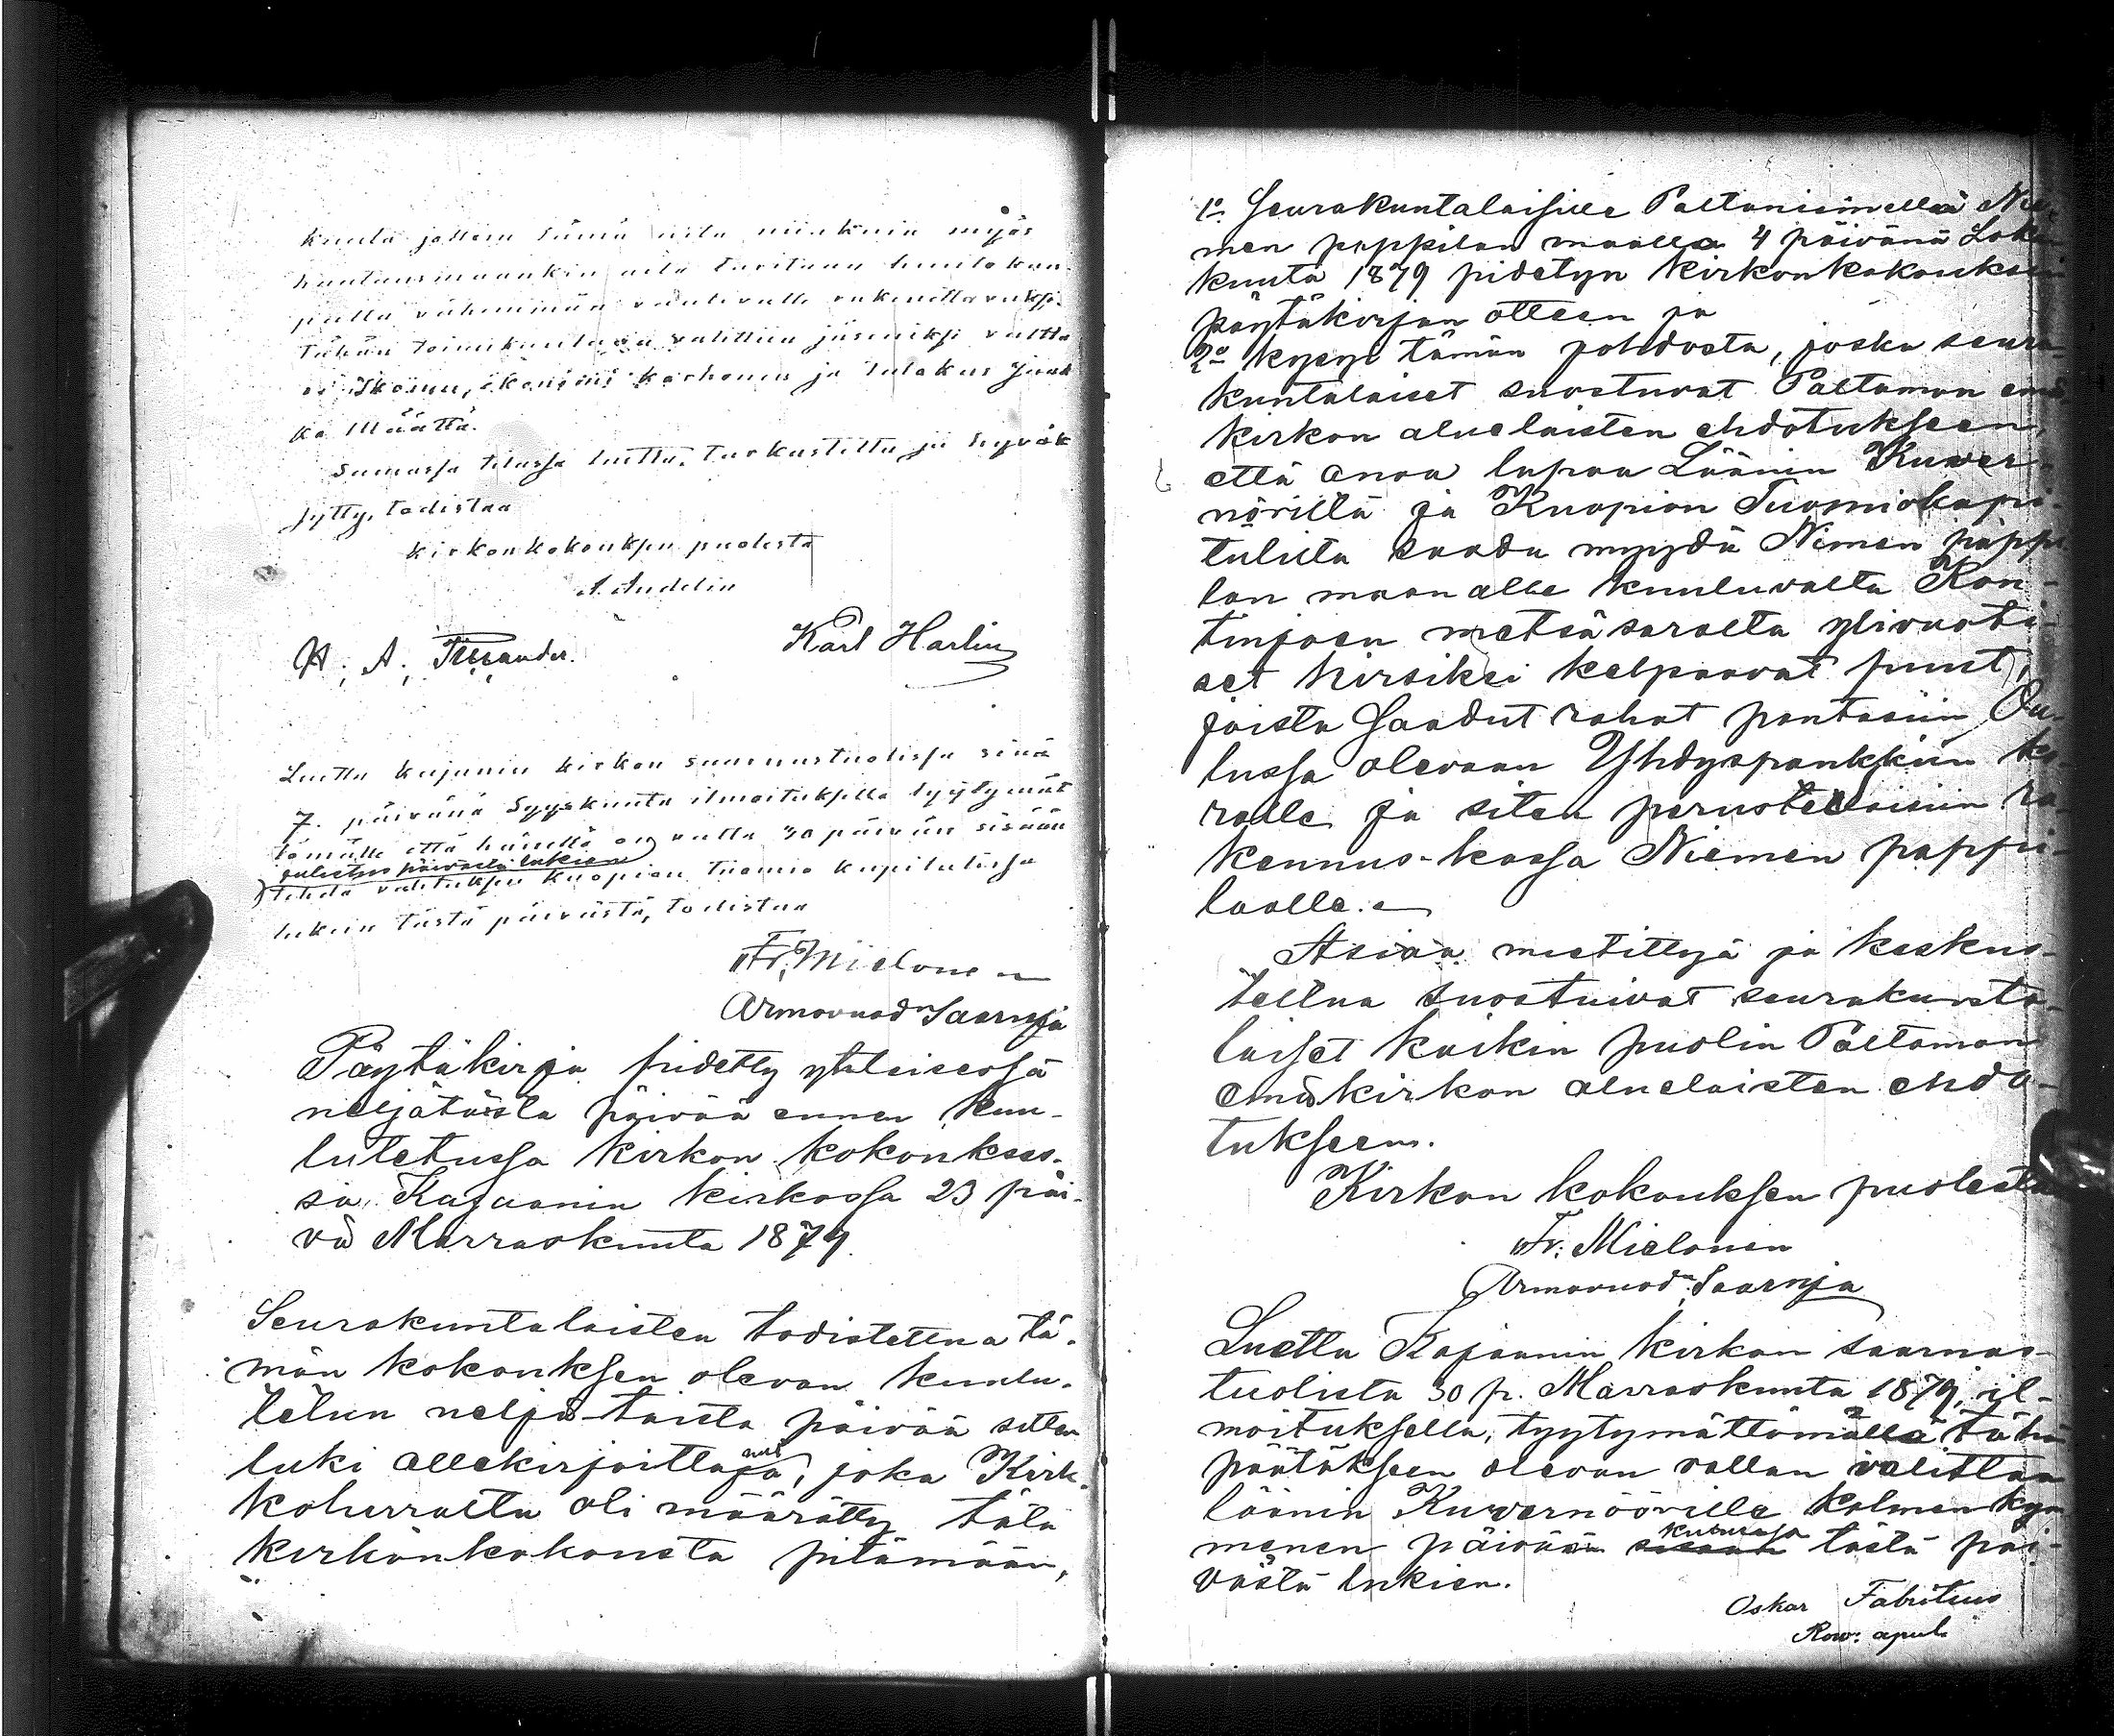 kuuta jossa sama asia niinkuin myös
kuntausmaankin
pialla vähimmän vaativalle rakenettavaksi.
Tähän toimikuntaan valittiin jäseniksi valtta
Karhonen ja talokas Jaak
ko Määttä.
Samassa tilassa luettu, tarkastettu ja hyväk
sytty, todistaa
kirkonkokouksen puolesta
A. Andelin
H. A. Karl Harlin
Luettu kajanin kirkon saarnastuolissa sinä
7. päivänä Syyskuuta ilmoituksella tyytymät
tömälle että hänellä on valta 30 päivän sisään
julistus päivästä lukien
tehdä valituksen kuopion tuomio kapitulissa
lukien tästä päivästä, todistaa
Fr. Mielonen
Armovuod: Saarnaja
Pöytäkirja pidetty yhteisessä
neljätoista päivää ennen kuu-
lutetussa kirkon kokoukses-
sa Kajaanin kirkossa 23 päi-
vä Marraskuuta 1879.
Seurakuntalaisten todistettua tä-
män kokouksen olevan kuulu-
tetun neljä-toista päivää sitten
luki allekirjoittanut, joka Kirk-
koherralta oli määrätty tätä
kirkonkokousta pitämään,
1o. Seurakuntalaisille Paltaniemellä Nie-
men pappilan maalla 4 päivänä Loka-
kuuta 1879 pidetyn kirkonkokouksen
pöytäkirjan otteen ja
2o kysyi tämän johdosta, joska seura-
kuntalaiset suostuvat Paltamon emä
kirkon aluelaisten ehdotukseen,
että anoa lupaa Läänin Kuver-
nörillä ja Kuopion Tuomiokapi-
tulilta saada myydä Niemen pappi-
lan maan alle kuuluvalta Kon-
tinjoen metsäsaralta ylivuoti-
set hirsiksi kelpaavat puut,
joista saadut rahat pantasiin Ou-
lussa olevaan Yhdyspankkiin ko-
rolle ja siten perustettaisiin ra-
kennus-kassa Niemen pappi-
lalle.
Asiaa mietittyä ja keskus-
teltua suostuivat seurakunta-
laiset kaikin puolin Paltamon
emäkirkon aluelaisten ehdo-
tukseen.
Kirkon kokouksen puolesta
Fr: Mielonen
Armovuod: Saarnja
Luettu Kajaanin kirkon saarnas-
tuolista 30 p. Marraskuuta 1879, il-
moituksella, tyytymättömällä tähän
päätökseen olevan vallan valittaa
läänin Kuvernöörille kolmen kym
menen päivän kuluessa tästä päi-
västä lukien.
Oskar Fabritius
Rov: apul.